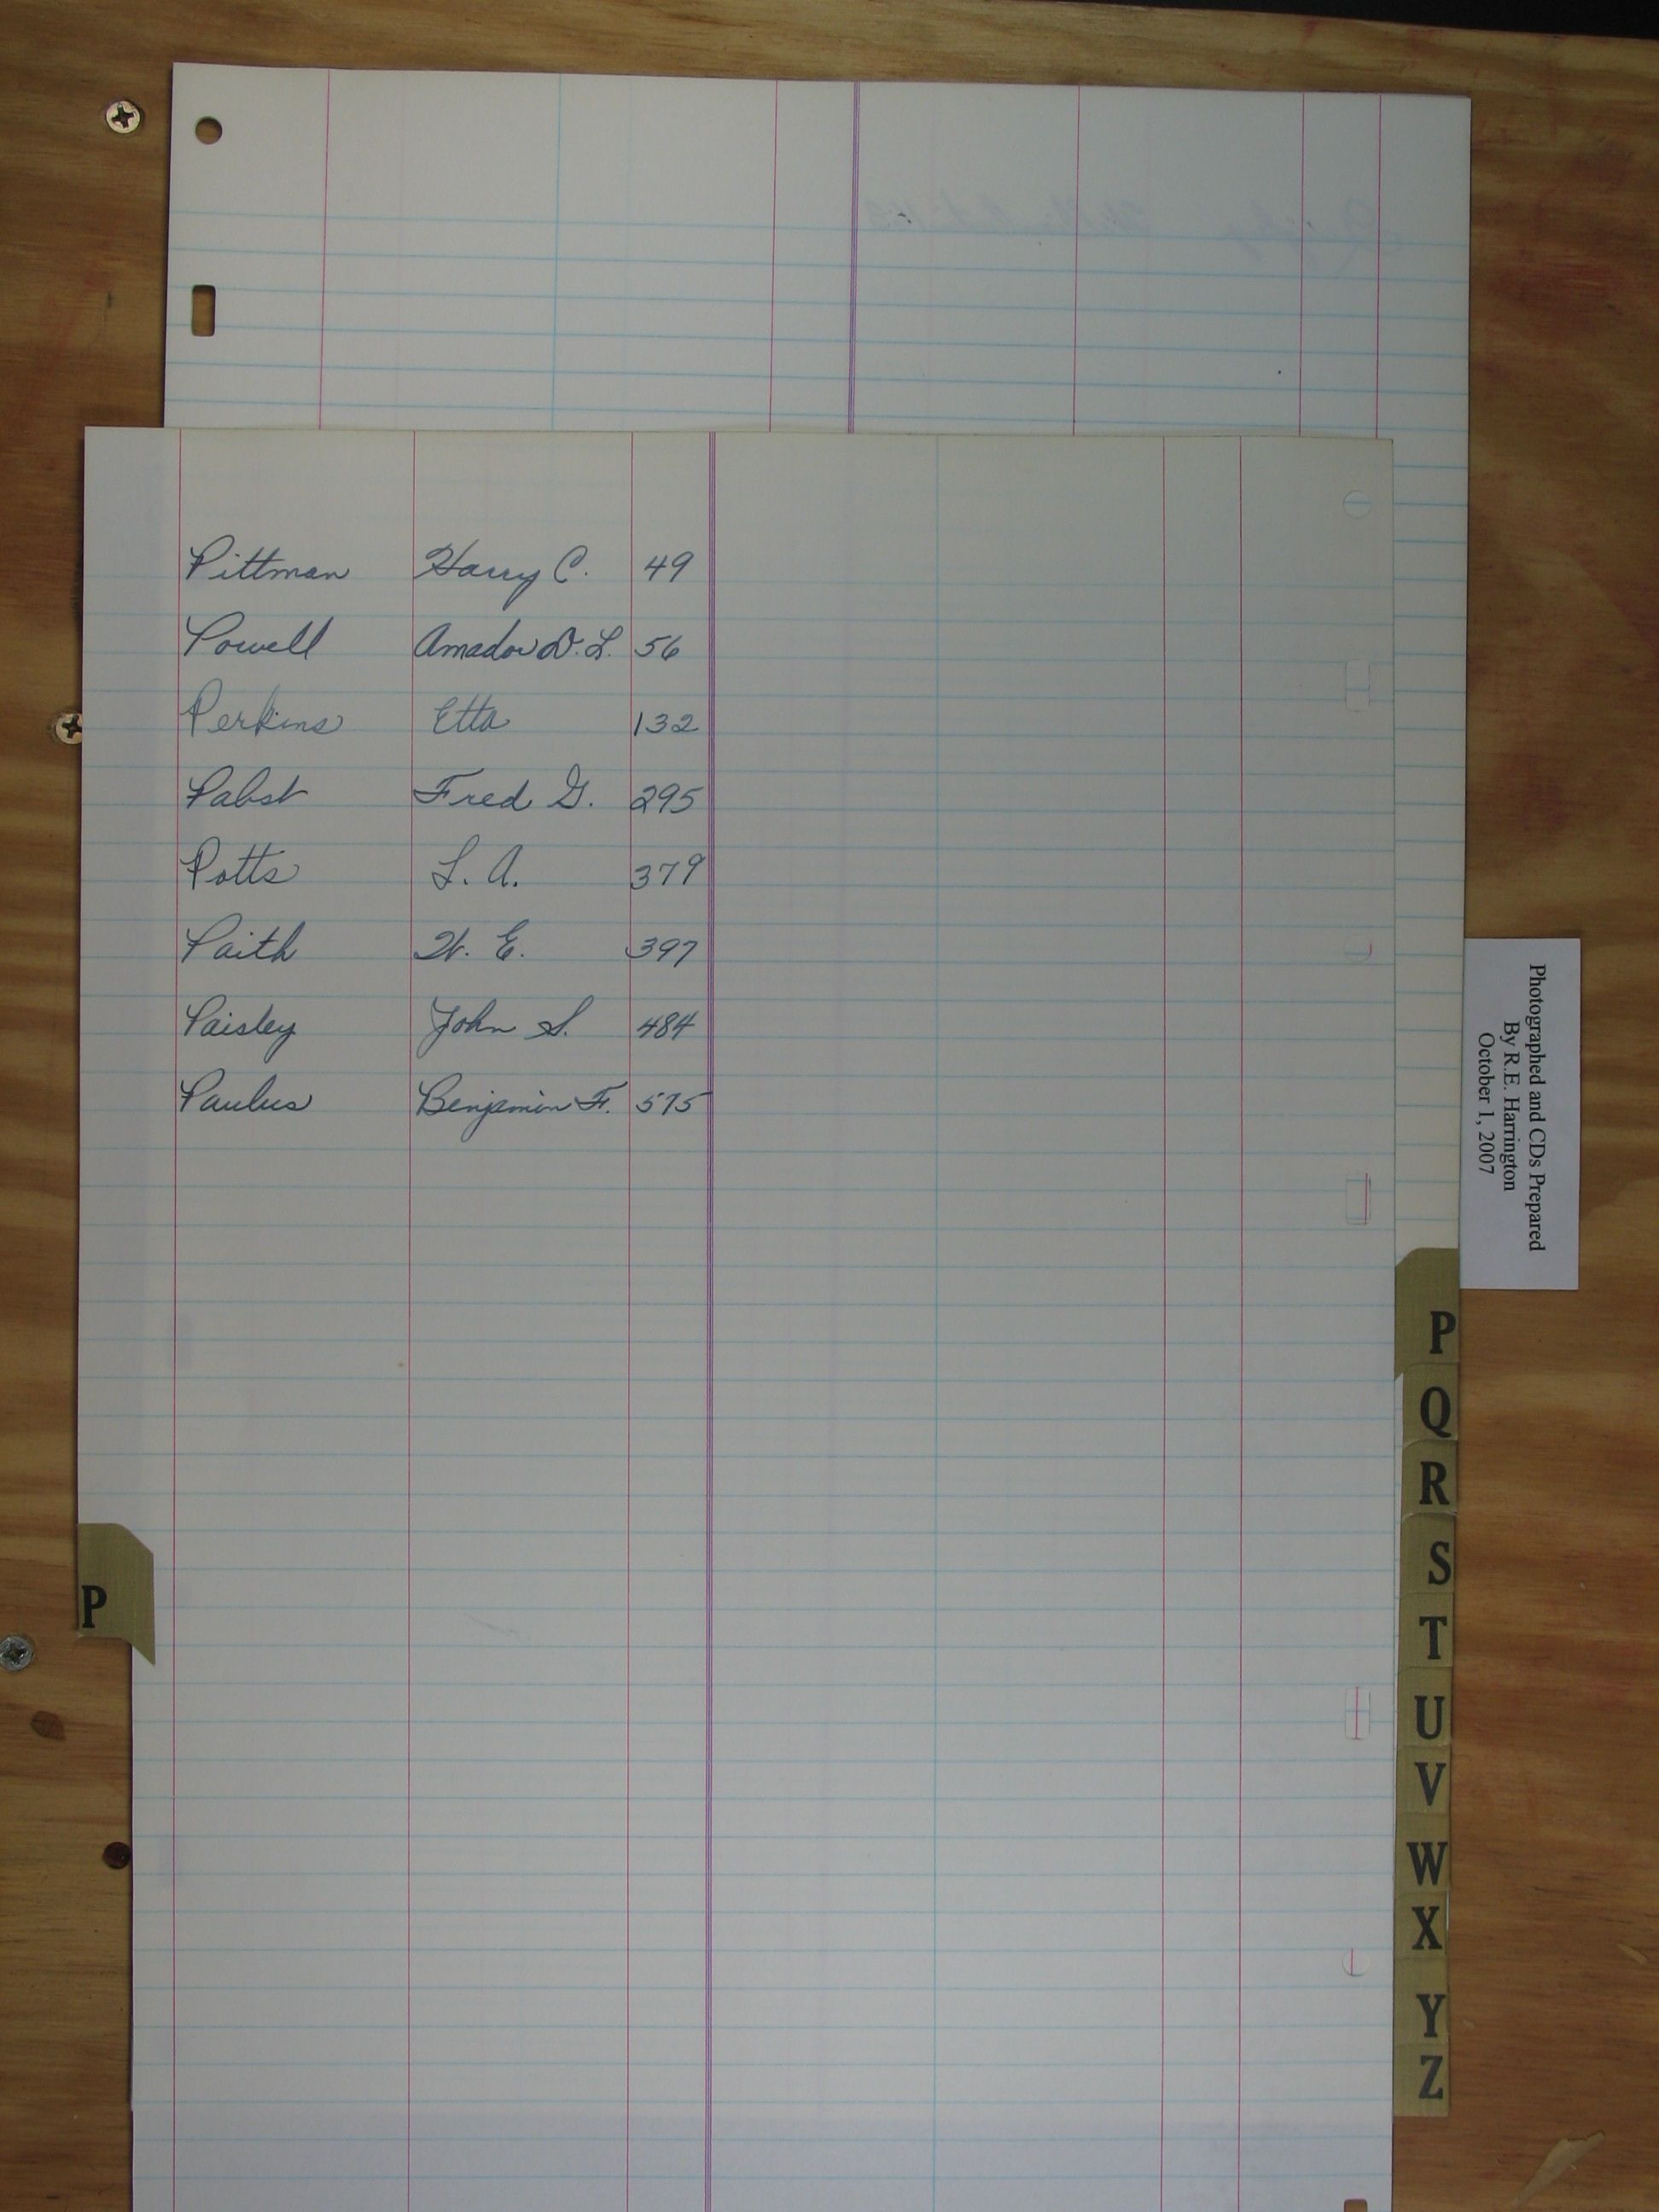 Pittman Harry C. 49
Powell Amador D. L. 56
Perkins Etta 132
Pabst Fred G. 295
Potts L. A. 379
Paith W. E. 397
Paisley John S. 484
Paulus Benjamin F. 575
Photographed and CDs Prepared
By R.E. Harrington
October 1, 2007
P
P
Q
R
S
T
U
V
W
X
Y
Z